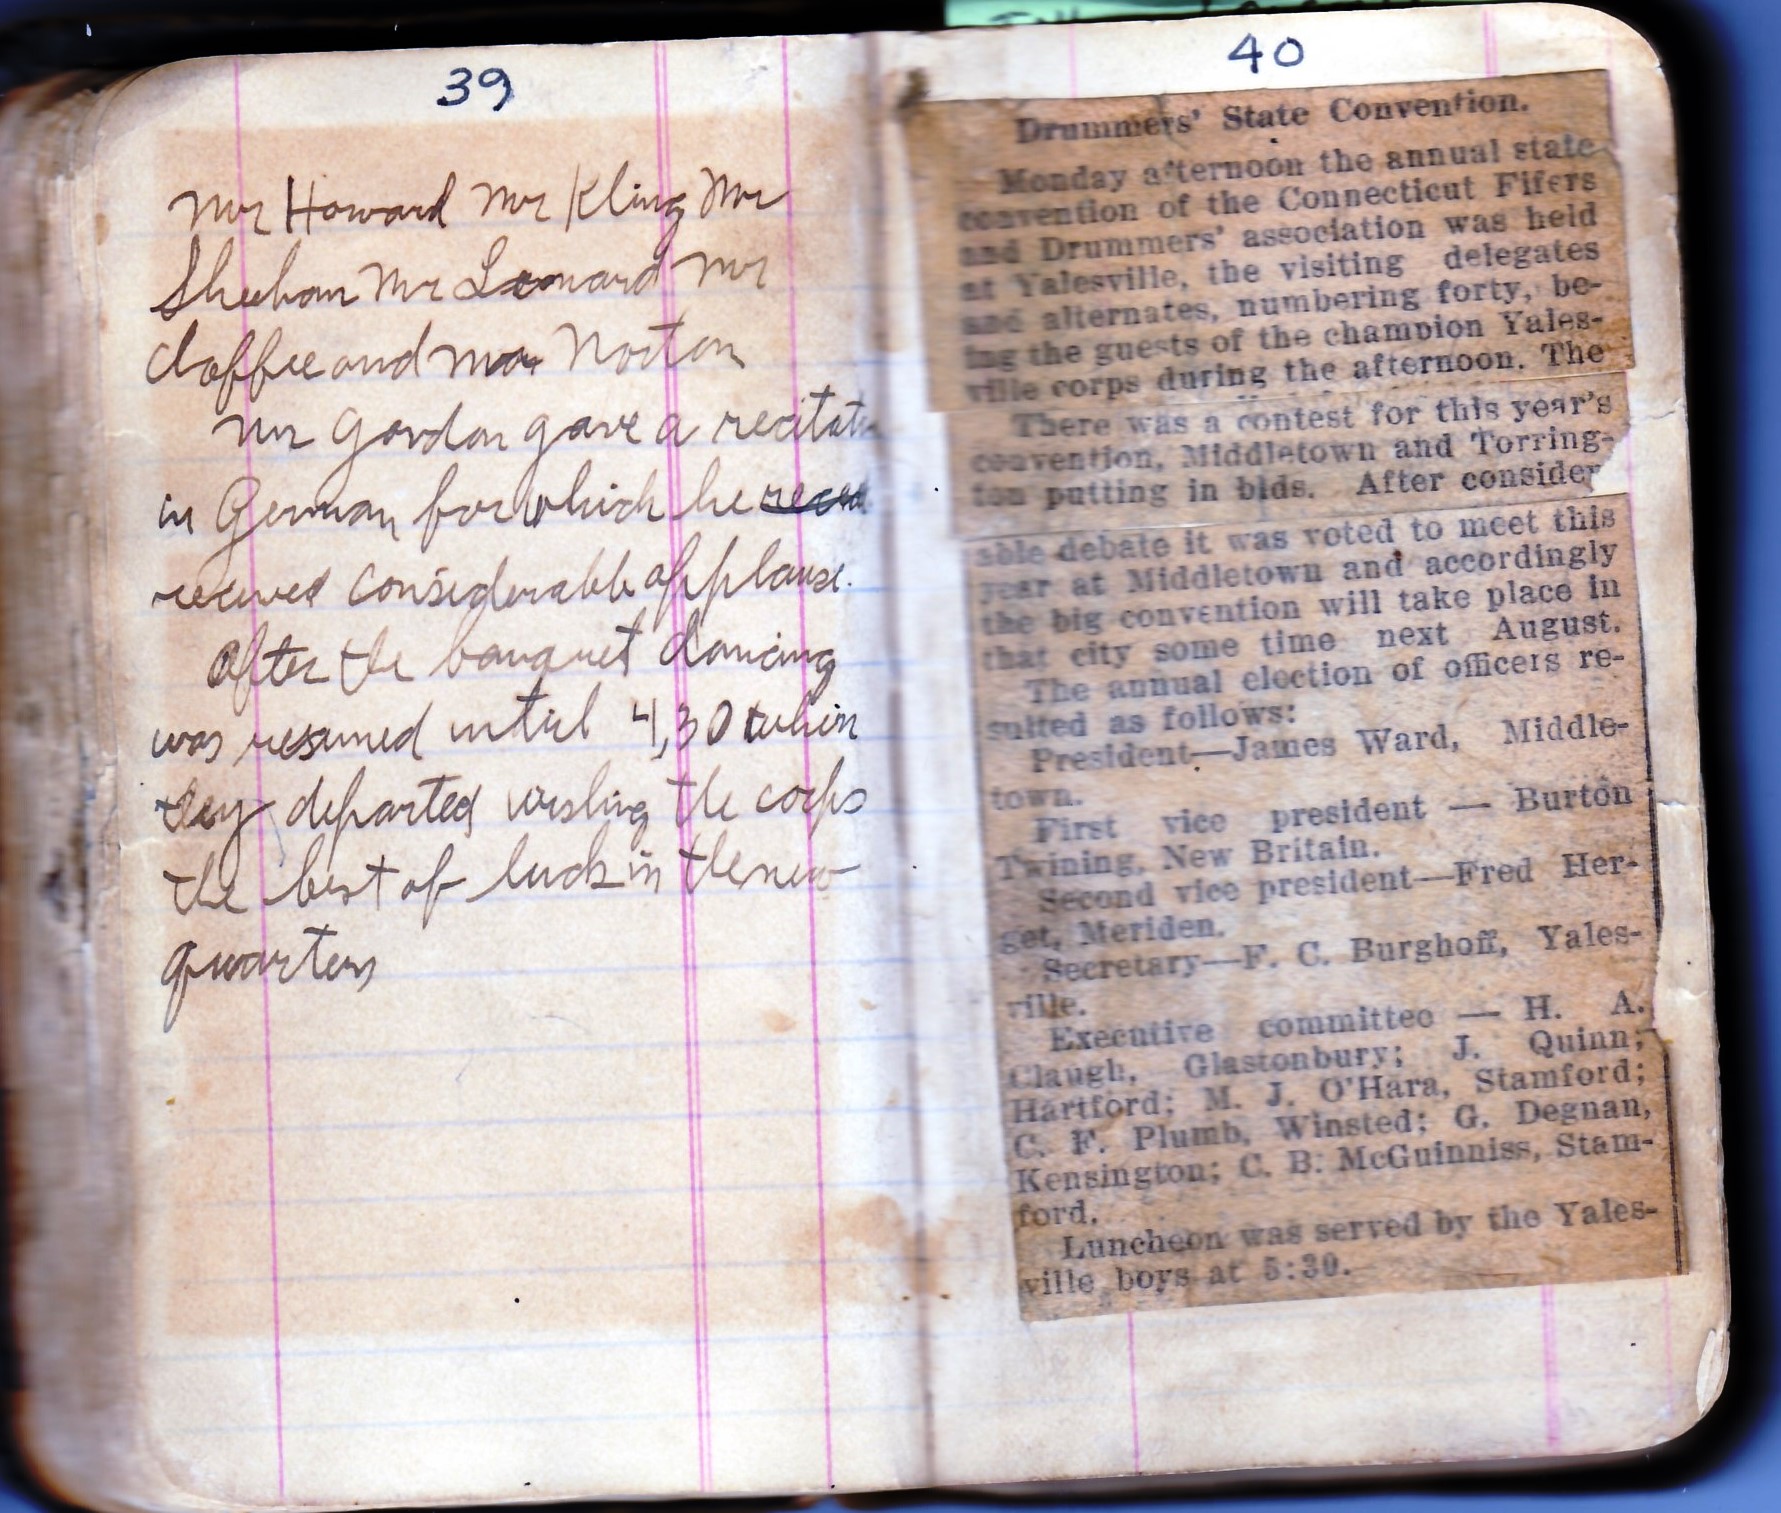 39
Mr Howard Mr Kling Mr
Sheehan Mr Leonard Mr
Claffee and Mr Norton
Mr Gordon gave a recitati
in German for which he
received considerable applause.
After the banquet dancing
was resumed until 4,30 when
they departed wishing the corps
the best of luck in the new
quarters
40
Drummers' State Convention.
Monday afternoon the annual state
convention of the Connecticut Fifers
and Drummers' association was held
at Yalesville, the visiting delegates
and alternates, numbering forty, be-
ing the guests of the champion Yales-
ville corps during the afternoon. The
There was a contest for this year's
convention, Middletown and Torring-
ton putting in bids. After consider
able debate it was voted to meet this
year at Middletown and accordingly
the big convention will take place in
that city some time next August.
The annual election of officers re-
sulted as follows:
President—James Ward, Middle-
town.
First vice president — Burton
Twining, New Britain.
Second vice president—Fred Her-
get, Meriden.
Secretary—F. C. Burghoff, Yales-
ville.
Executive committee — H. A.
Claugh, Glastonbury; J. Quinn;
Hartford; M. J. O'Hara, Stamford;
C. F. Plumb, Winsted; G. Degnan,
Kensington; C. B. McGuinniss, Stam-
ford.
Luncheon was served by the Yales-
ville boys at 5:30.